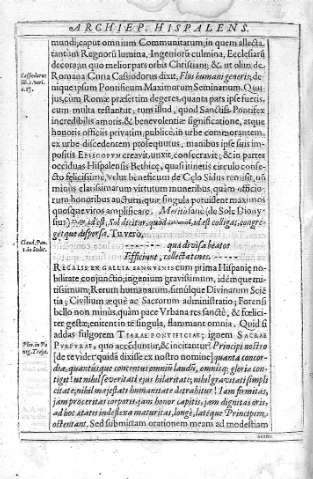 ARCHIEP. HISPALENS.
mundi; caput omnium Communitatum, in quem allecta,
tantùm Regnorū lumina, Ingeniorũ culmina, Ecclesiarū
decora; in quo melior pars orbis Christiani; &, ut olim de
Cassiodorus
Romana Curia Cassiodorus dixit, Flos humani generis, de-
nique ipsum Pontificum Maximorum Seminarium. Qui
jus, cùm Romæ præsertim degeres, quanta pars ipse fueris,
cum multa testantur, tum illud, quod Sanctis Pontifex
incredibilis amoris, & benevolentiæ significatione, atque
honoris officiis privatim, publicè, in urbe commorantem,
ex urbe discedentem prosequutus, manibus ipse suis im-
positis EPISCOPUM creavit, unxit, consecravit; & in partes
occiduas Hispalensis Bethicæ, quasi itineris circulo confe-
cto felicissimè, velut beneficum de Cælo Sidus remisit, no
minùs clarissimarum virtutum muneribus, quàm officio-
rum honoribus auctum, quæ singula potuissent maximos
quosque viros amplificare. Meritò sanè (de Sole Diony-
sius) id est, Sol dicitur, quòd id est colligat, congre-
get que dispersa. Tu verò,
Claud. Pan.
qua divisa beatos
Efficiunt, collecta tenes.
REGALIS EX GALLIA SANGUINIS cum prima Hispanię no-
bilitate conjunctio; ingenium gravissimum, idemque mi-
tissimum; Rerum humanarum, simúlque Divinarum Scie-
tia; Civilium æquè ac Sacrorum administratio; Forensi
bello non minùs, quàm pace Urbana res sanctè, & fœlici-
ter gestæ, enitent in te singula, flammant omnia. Quid si
addas fulgorem TIARAE PONTIFICIAE; ignem SACRAE
PURPURAE, quo accēdantur, & incitantur? Principi nostro
Plin. in Pa-
neg. Traja.
(de te vider quidā dixisse ex nostro nomine) quanta concor-
dia, quantúsque concentus omniū laudū, omnisq; gloria con-
tigit! ut nihil severitati ejus hilaritate; nihil gravitati simpli
citate, nihil majestati humanitate detrahitur! Iam firmitas,
jam proceritas corporis, jam honor capitis, jam dignitas oris,
ad hoc ætatis indeflexa maturitas, longè, latéque Principem,
ostentant. Sed submistam orationem meam ad modestiam